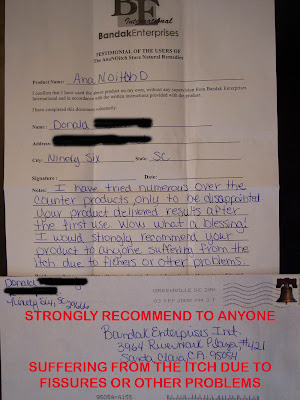 BF
International
BandakEnterprises
TESTIMONIAL OF THE USERS OF
The AnaNOitch Store Natural Remedies
Product Name: AnaNOitch D
I confirm that I have used the above product on my own, without any supervision from Bandak Enterprises
International and in accordance with the written instructions provided with the product.
I have completed this document voluntarily.
Name: Donald
Address:
City: Ninety Six State: SC
Signature: Date:
Notes: I have tried numerous over the
counter products, only to be disappointed
Your product delivered results after
the first use. Wow what a blessing!
I would strongly recommend your
product to anyone suffering from the
itch due to fichers or other problems.
Donald
Ninety Six, SC
29666
GREENVILLE SC 296
STRONGLY RECOMMEND TO ANYONE
Bandak Enterprises Int.
3964 Rivermark Plaza, #421
Santa Clara, CA 95054
SUFFERING FROM THE ITCH DUE TO
FISSURES OR OTHER PROBLEMS